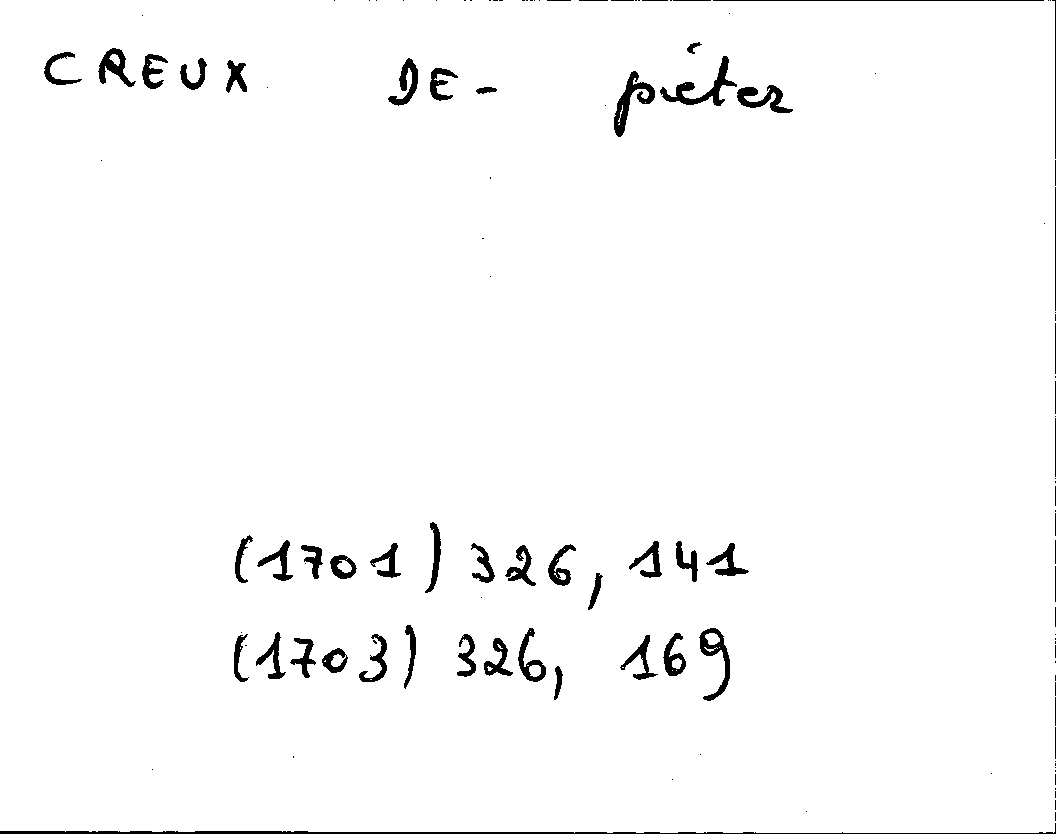 CREUX DE- piéter
(1701) 326, 141
(1703) 326, 169